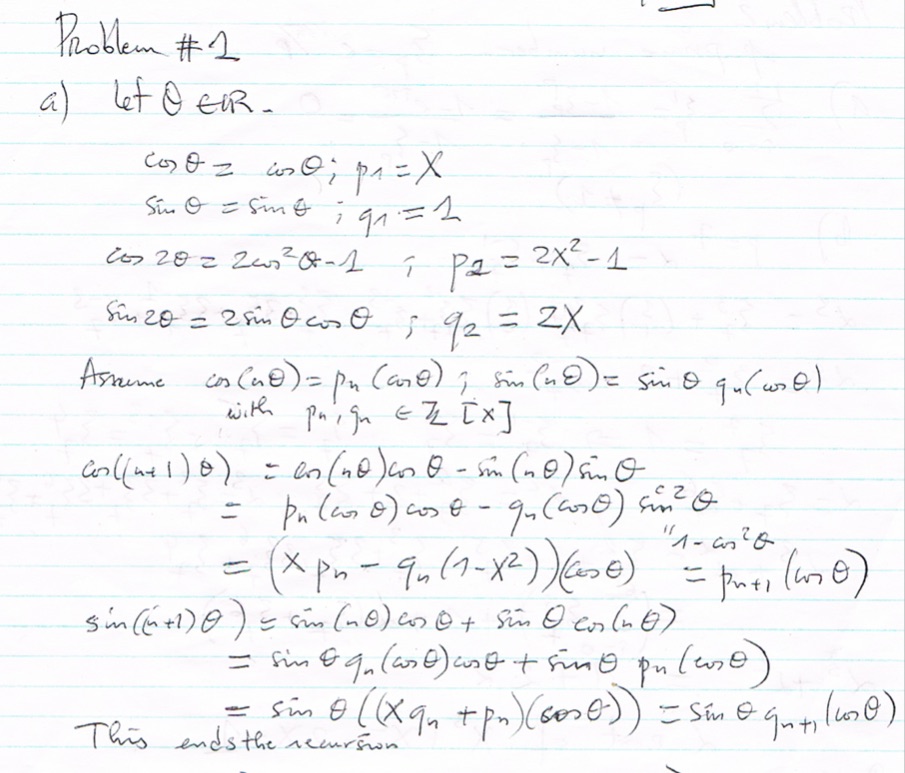 Problem #1
a) let θ ∈ ℝ.
cos θ = cos θ ; p₁ = X
sin θ = sin θ ; q₁ = 1
cos 2θ = 2cos²θ-1 ; p₂ = 2X²-1
sin 2θ = 2 sin θ cos θ ; q₂ = 2X
Assume cos(nθ) = pₙ(cos θ) ; sin(nθ) = sin θ qₙ(cos θ)
with pₙ, qₙ ∈ ℤ[X]
cos((n+1)θ) = cos(nθ)cos θ - sin(nθ)sin θ
= pₙ(cos θ)cos θ - qₙ(cos θ) sin²θ
"1-cos²θ
= (Xpₙ - qₙ(1-X²))(cos θ) = pₙ₊₁(cos θ)
sin((n+1)θ) = sin(nθ)cos θ + sin θ cos(nθ)
= sin θ qₙ(cos θ)cos θ + sin θ pₙ(cos θ)
= sin θ((Xqₙ + pₙ)(cos θ)) = sin θ qₙ₊₁(cos θ)
This ends the recursion